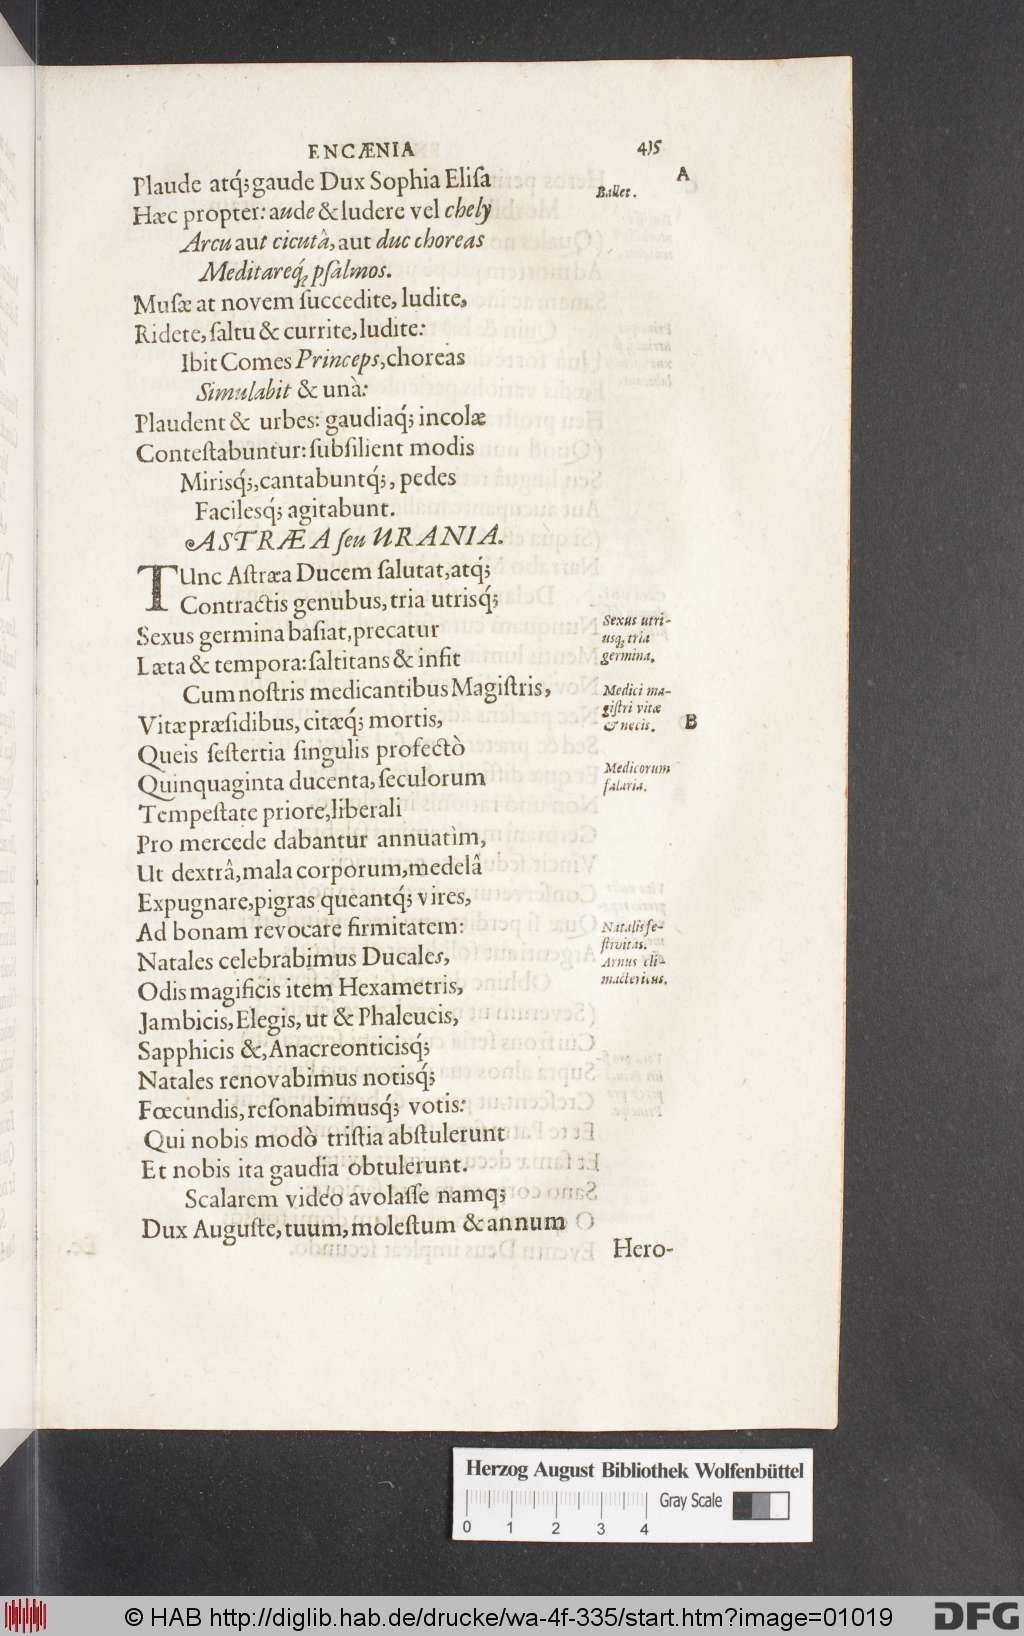 ENCÆNIA 415
Plaude atq́; gaude Dux Sophia Eliſa
A
Ballet.
Hæc propter: aude & ludere vel chely
Arcu aut cicutâ, aut duc choreas
Meditareq́; pſalmos.
Muſæ at novem ſuccedite, ludite,
Ridete, ſaltu & currite, ludite:
Ibit Comes Princeps, choreas
Simulabit & unà:
Plaudent & urbes: gaudiaq́; incolæ
Conteſtabuntur: ſubſilient modis
Mirisq́;, cantabuntq́;, pedes
Facilesq́; agitabunt.
ASTRÆA ſeu URANIA.
TUnc Aſtræa Ducem ſalutat, atq́;
Contractis genubus, tria utrisq́;
Sexus germina baſiat, precatur
Læta & tempora: ſaltitans & infit
Sexus utri-
usq́; tria
germina.
Cum noſtris medicantibus Magiſtris,
Vitæ præſidibus, citæq́; mortis,
Medici ma-
giſtri vitæ
& necis.
B
Queis ſeſtertia ſingulis profectò
Quinquaginta ducenta, ſeculorum
Medicorum
ſalaria.
Tempeſtate priore, liberali
Pro mercede dabantur annuatìm,
Ut dextrâ, mala corporum, medelâ
Expugnare, pigras queantq́; vires,
Ad bonam revocare firmitatem:
Natales celebrabimus Ducales,
Natalis fe-
ſtivitas.
Annus cli-
mactericus.
Odis magificis item Hexametris,
Jambicis, Elegis, ut & Phaleucis,
Sapphicis &, Anacreonticisq́;
Natales renovabimus notisq́;
Fœcundis, reſonabimusq́; votis:
Qui nobis modò triſtia abſtulerunt
Et nobis ita gaudia obtulerunt.
Scalarem video avolaſſe namq;
Dux Auguſte, tuum, moleſtum & annum
Hero-
Herzog August Bibliothek Wolfenbüttel
Gray Scale
0 1 2 3 4
© HAB http://diglib.hab.de/drucke/wa-4f-335/start.htm?image=01019
DFG